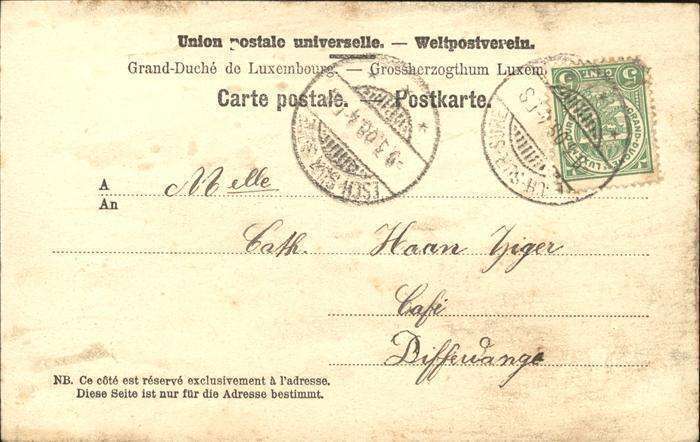 Union postale universelle. — Weltpostverein.
Grand-Duché de Luxembourg. — Grossherzogthum Luxem
Carte postale. Postkarte.
A
An
Melle
Cath. Haan
Café
Differdange
NB. Ce côté est réservé exclusivement à l'adresse.
Diese Seite ist nur für die Adresse bestimmt.